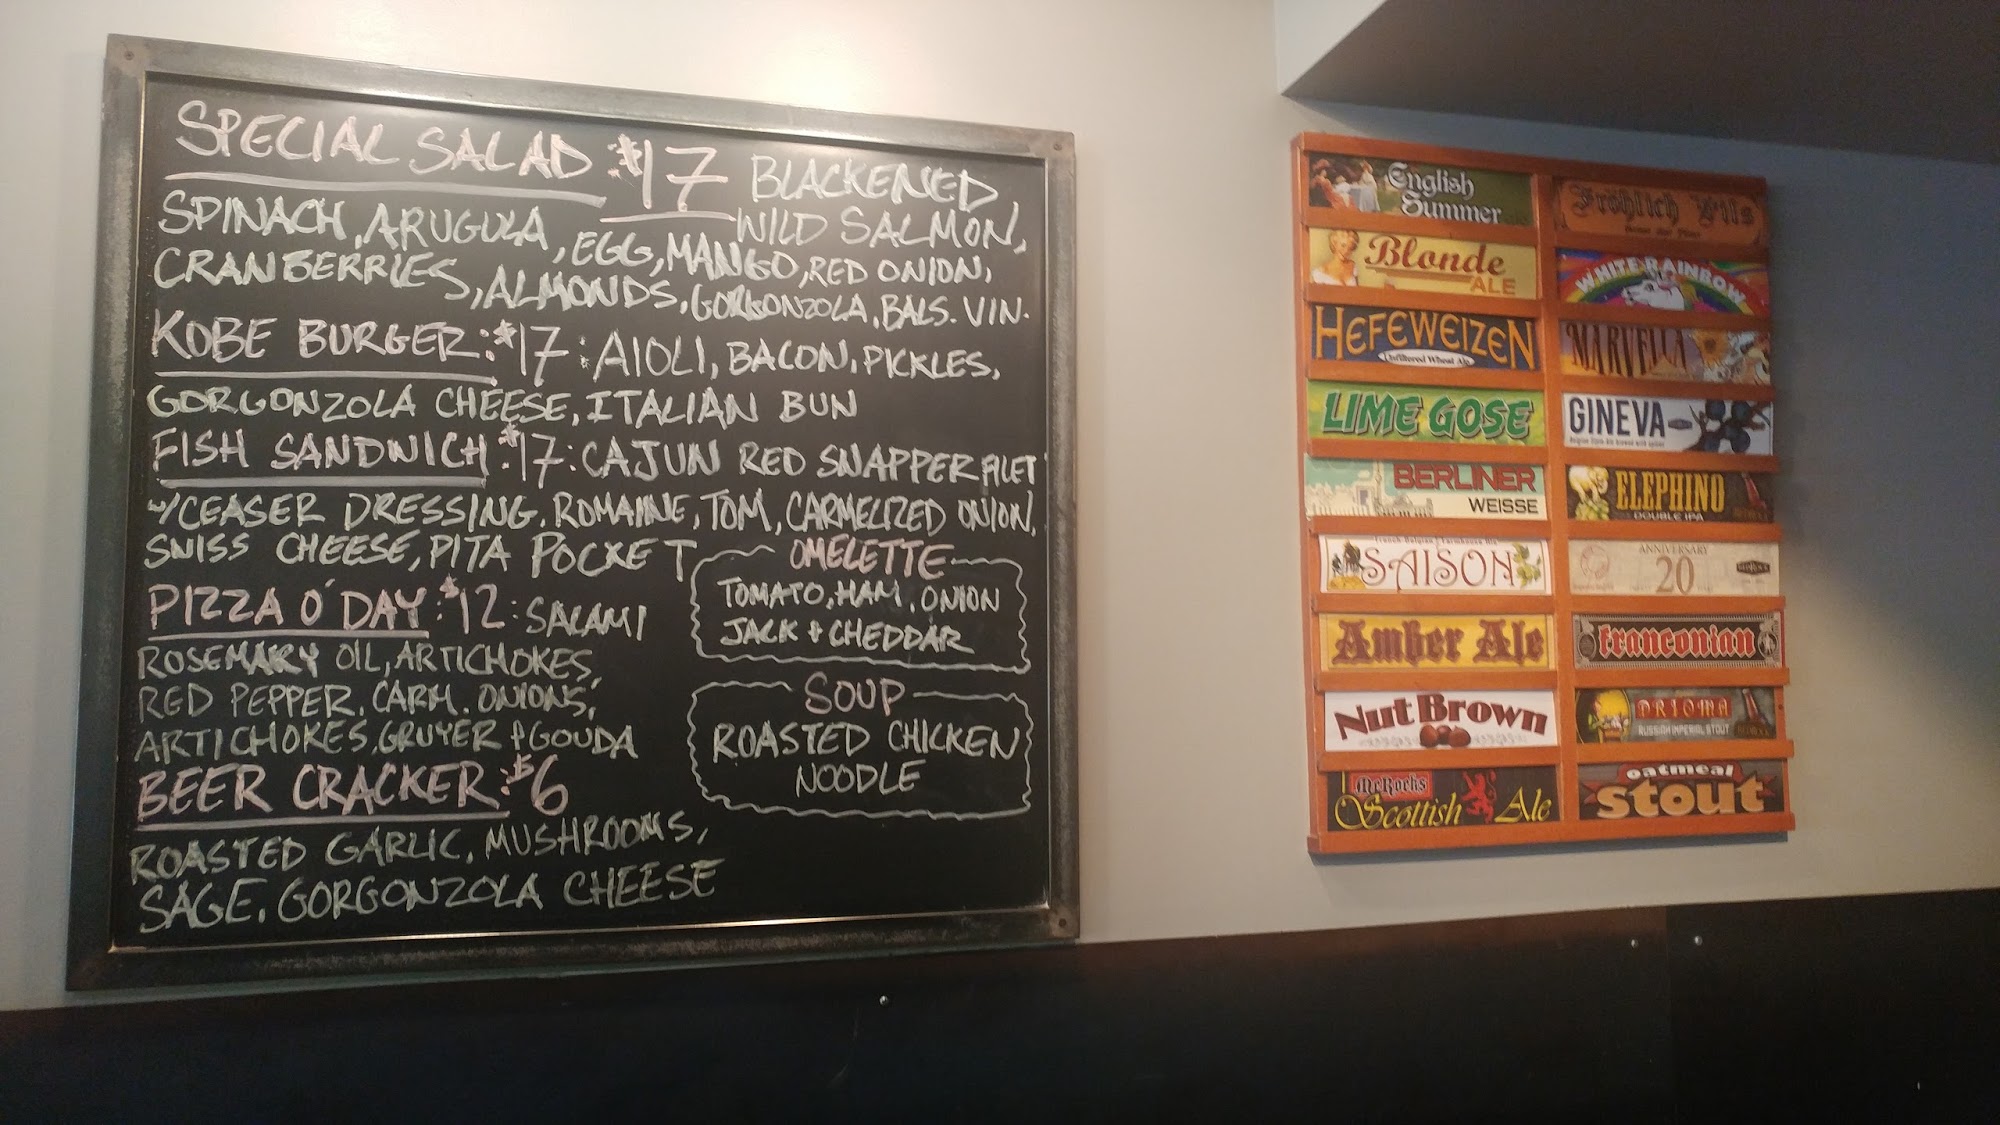 SPECIAL SALAD $17 BLACKENED
WILD SALMON,
SPINACH, ARUGULA, EGG, MANGO, RED ONION,
CRANBERRIES, ALMONDS, GORGONZOLA, BALS. VIN.
KOBE BURGER: $17: AIOLI, BACON, PICKLES,
GORGONZOLA CHEESE, ITALIAN BUN
FISH SANDWICH: $17: CAJUN RED SNAPPER FILET
W/CEASER DRESSING, ROMAINE, TOM, CARMELIZED ONION,
SWISS CHEESE, PITA POCKET
PIZZA O' DAY: $12: SALAMI
ROSEMARY OIL, ARTICHOKES,
RED PEPPER, CARM. ONIONS,
ARTICHOKES, GRUYER & GOUDA
BEER CRACKER: $6
ROASTED GARLIC, MUSHROOMS,
SAGE, GORGONZOLA CHEESE
OMELETTE
TOMATO, HAM, ONION
JACK & CHEDDAR
SOUP
ROASTED CHICKEN
NOODLE
English
Summer
Blonde
ALE
HEFEWEIZEN
Unfiltered Wheat Ale
LIME GOSE
BERLINER
WEISSE
SAISON
Amber Ale
Nut Brown
McRocks
Scottish Ale
Fröhlich Pils
WHITE RAINBOW
MARVELLA
GINEVA
ELEPHINO
DOUBLE IPA
ANNIVERSARY
20
franconian
DRIOMA
RUSSIAN IMPERIAL STOUT
oatmeal
stout